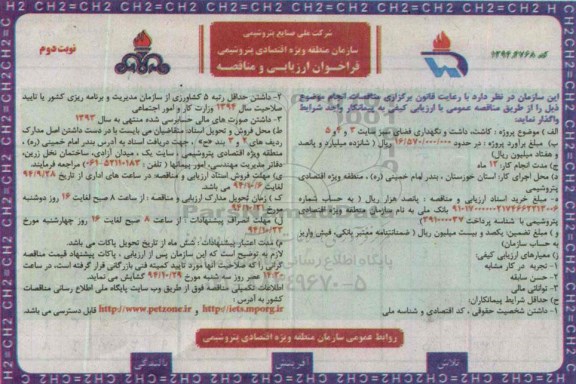 شرکت ملی صنایع پتروشیمی
سازمان منطقه ویژه اقتصادی پتروشیمی
فراخوان ارزیابی و مناقصه
نوبت دوم
کد ۱۳۹۴،۴۷۶۸
این سازمان در نظر دارد با رعایت قانون برگزاری مناقصات انجام موضوع
ذیل را از طریق مناقصه عمومی با ارزیابی کیفی به پیمانکار واجد شرایط
واگذار نماید:
الف) موضوع پروژه: کاشت، داشت و نگهداری فضای سبز سایت ۳ و ۴ و ۵
ب) مبلغ برآورد پروژه: در حدود ۱۶/۵۷۰/۰۰۰/۰۰۰ ریال (شانزده میلیارد و پانصد
و هفتاد میلیون ریال)
ج) مدت انجام کار: ۱۲ ماه
د) محل اجرای کار: استان خوزستان، بندر امام خمینی (ره)، منطقه ویژه اقتصادی
پتروشیمی
ه) مبلغ خرید اسناد ارزیابی و مناقصه: پانصد هزار ریال (به حساب شماره
بانک ملی به نام سازمان منطقه ویژه اقتصادی
پتروشیمی با شناسه پرداخت
و) مبلغ تضمین: یکصد و بیست میلیون ریال (ضمانتنامه معتبر بانکی، فیش واریز
به حساب سازمان)
ز) معیارهای ارزیابی کیفی:
۱- تجربه در کار مشابه
۲- حسن سابقه
۳- توانائی مالی
ح) حداقل شرایط پیمانکاران:
۱- داشتن شخصیت حقوقی، کد اقتصادی و شناسه ملی
۲- داشتن حداقل رتبه ۵ کشاورزی از سازمان مدیریت و برنامه ریزی کشور یا تایید
صلاحیت سال ۱۳۹۴ وزارت کار و امور اجتماعی
۳- داشتن صورت های مالی حسابرسی شده منتهی به سال ۱۳۹۳
ط) محل فروش و تحویل اسناد: متقاضیان می بایست با در دست داشتن اصل مدارک
ردیف های ۲ و ۳ بند «ح»، جهت دریافت اسناد به آدرس بندر امام خمینی (ره)،
منطقه ویژه اقتصادی پتروشیمی، سایت یک، میدان آزادی، ساختمان نخل زرین،
دفتر مدیریت مهندسی، امور پیمانها (تلفن: ۵۲۱۱۰۱۸۳-۰۶۱) مراجعه فرمایند.
ی) مهلت فروش اسناد ارزیابی و مناقصه: در ساعت های اداری از تاریخ ۹۴/۹/۲۸
لغایت ۹۴/۱۰/۶ می باشد.
ک) زمان تحویل مدارک ارزیابی و مناقصه: از ساعت ۸ صبح لغایت ۱۶ روز دوشنبه
مورخ ۹۴/۱۰/۲۱
ل) مهلت تسلیم پیشنهادات: از ساعت ۸ صبح لغایت ۱۶ روز چهارشنبه مورخ
م) مدت اعتبار پیشنهادات: شش ماه از تاریخ تحویل پاکات می باشد.
لازم به توضیح است که این سازمان پس از ارزیابی، پاکات پیشنهاد قیمت مناقصه
گرانی را که صلاحیت آنها مورد تایید کمیته فنی بازرگانی قرار گرفته است، در ساعت
۱۴:۳۰ عصر روز سه شنبه مورخ ۹۴/۱۰/۲۹ گشایش می نماید.
اطلاعات تکمیلی مناقصه فوق از طریق وب سایت پایگاه ملی اطلاع رسانی مناقصات
کشور به آدرس:
http://iets.mporg.ir و http://www.petzone.ir قابل دسترسی می باشد.
روابط عمومی سازمان منطقه ویژه اقتصادی پتروشیمی
تلاش
آفرینش
بالندگی